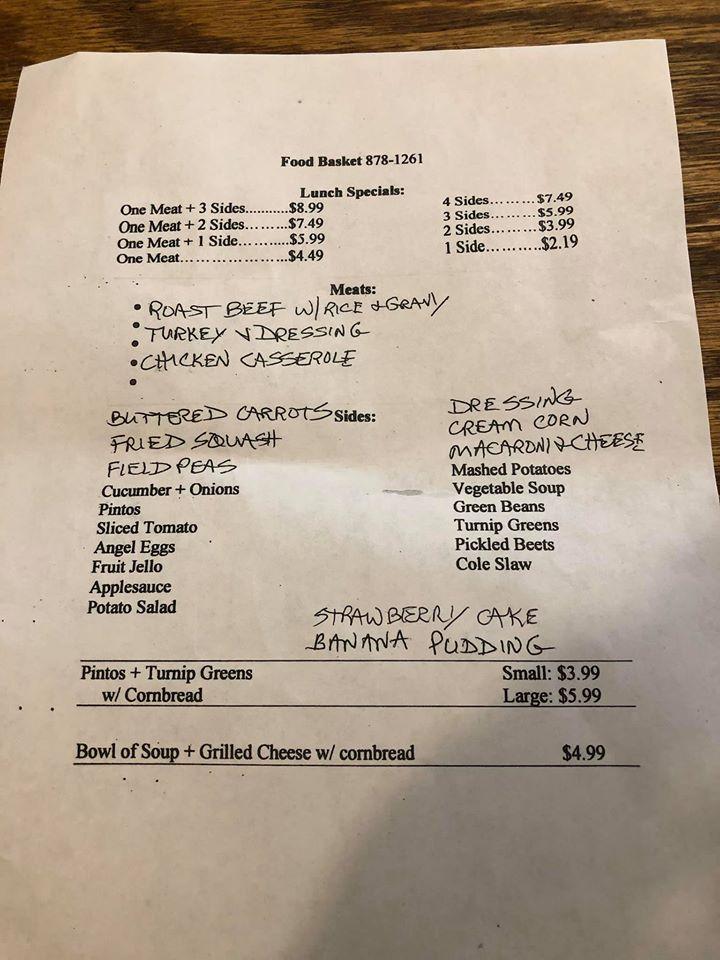 Food Basket 878-1261
Lunch Specials:
One Meat + 3 Sides..........$8.99
One Meat + 2 Sides.......$7.49
One Meat + 1 Side..........$5.99
One Meat...................$4.49
4 Sides.........$7.49
3 Sides.........$5.99
2 Sides.........$3.99
1 Side...........$2.19
Meats:
• ROAST BEEF W/RICE & GRAVY
• TURKEY & DRESSING
• CHICKEN CASSEROLE
•
Sides:
BUTTERED CARROTS
FRIED SQUASH
FIELD PEAS
Cucumber + Onions
Pintos
Sliced Tomato
Angel Eggs
Fruit Jello
Applesauce
Potato Salad
DRESSING
CREAM CORN
MACARONI & CHEESE
Mashed Potatoes
Vegetable Soup
Green Beans
Turnip Greens
Pickled Beets
Cole Slaw
STRAWBERRY CAKE
BANANA PUDDING
Pintos + Turnip Greens Small: $3.99
w/ Cornbread Large: $5.99
Bowl of Soup + Grilled Cheese w/ cornbread $4.99